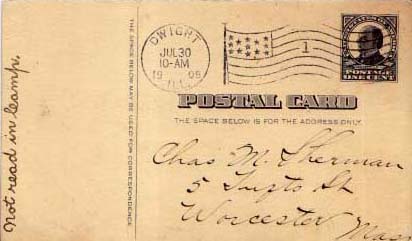 Not read in Camp.
THE SPACE BELOW MAY BE USED FOR CORRESPONDENCE.
DWIGHT
JUL 30
10-AM
19
ILL.
1
POSTAGE
ONE CENT
POSTAL CARD
THE SPACE BELOW IS FOR THE ADDRESS ONLY.
Chas M. Sherman
5 St
Worcester Mass